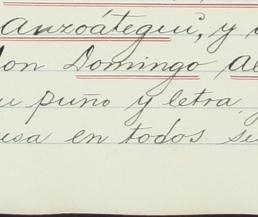 Anzoátegui, y
don Domingo Al
u puño y letra,
esa en todos su